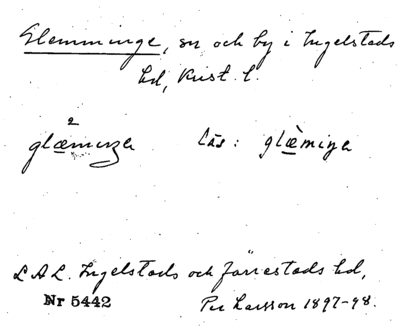 Glemminge, sn och by i Ingelstads
hd, Krist. l.
2
glæminga läs: glæ̀miŋa
L A L. Ingelstads och Järrestads hd,
Nr 5442 Per Larsson 1897-98.